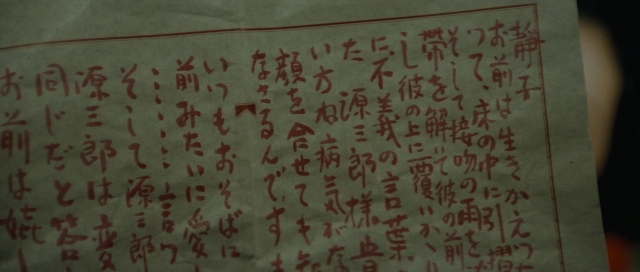 静子
お前は生きかえった
って、床の中に引き摺
そして接吻の雨を
帯を解いて彼の前
し彼の上に覆いか
に不義の言葉
た 源三郎様
い方ね病気が
顔を合せても
なさるんです
いつもおそばに
前みたいに愛
……言っ
そして源三郎
源三郎は変
同じだと答
お前は